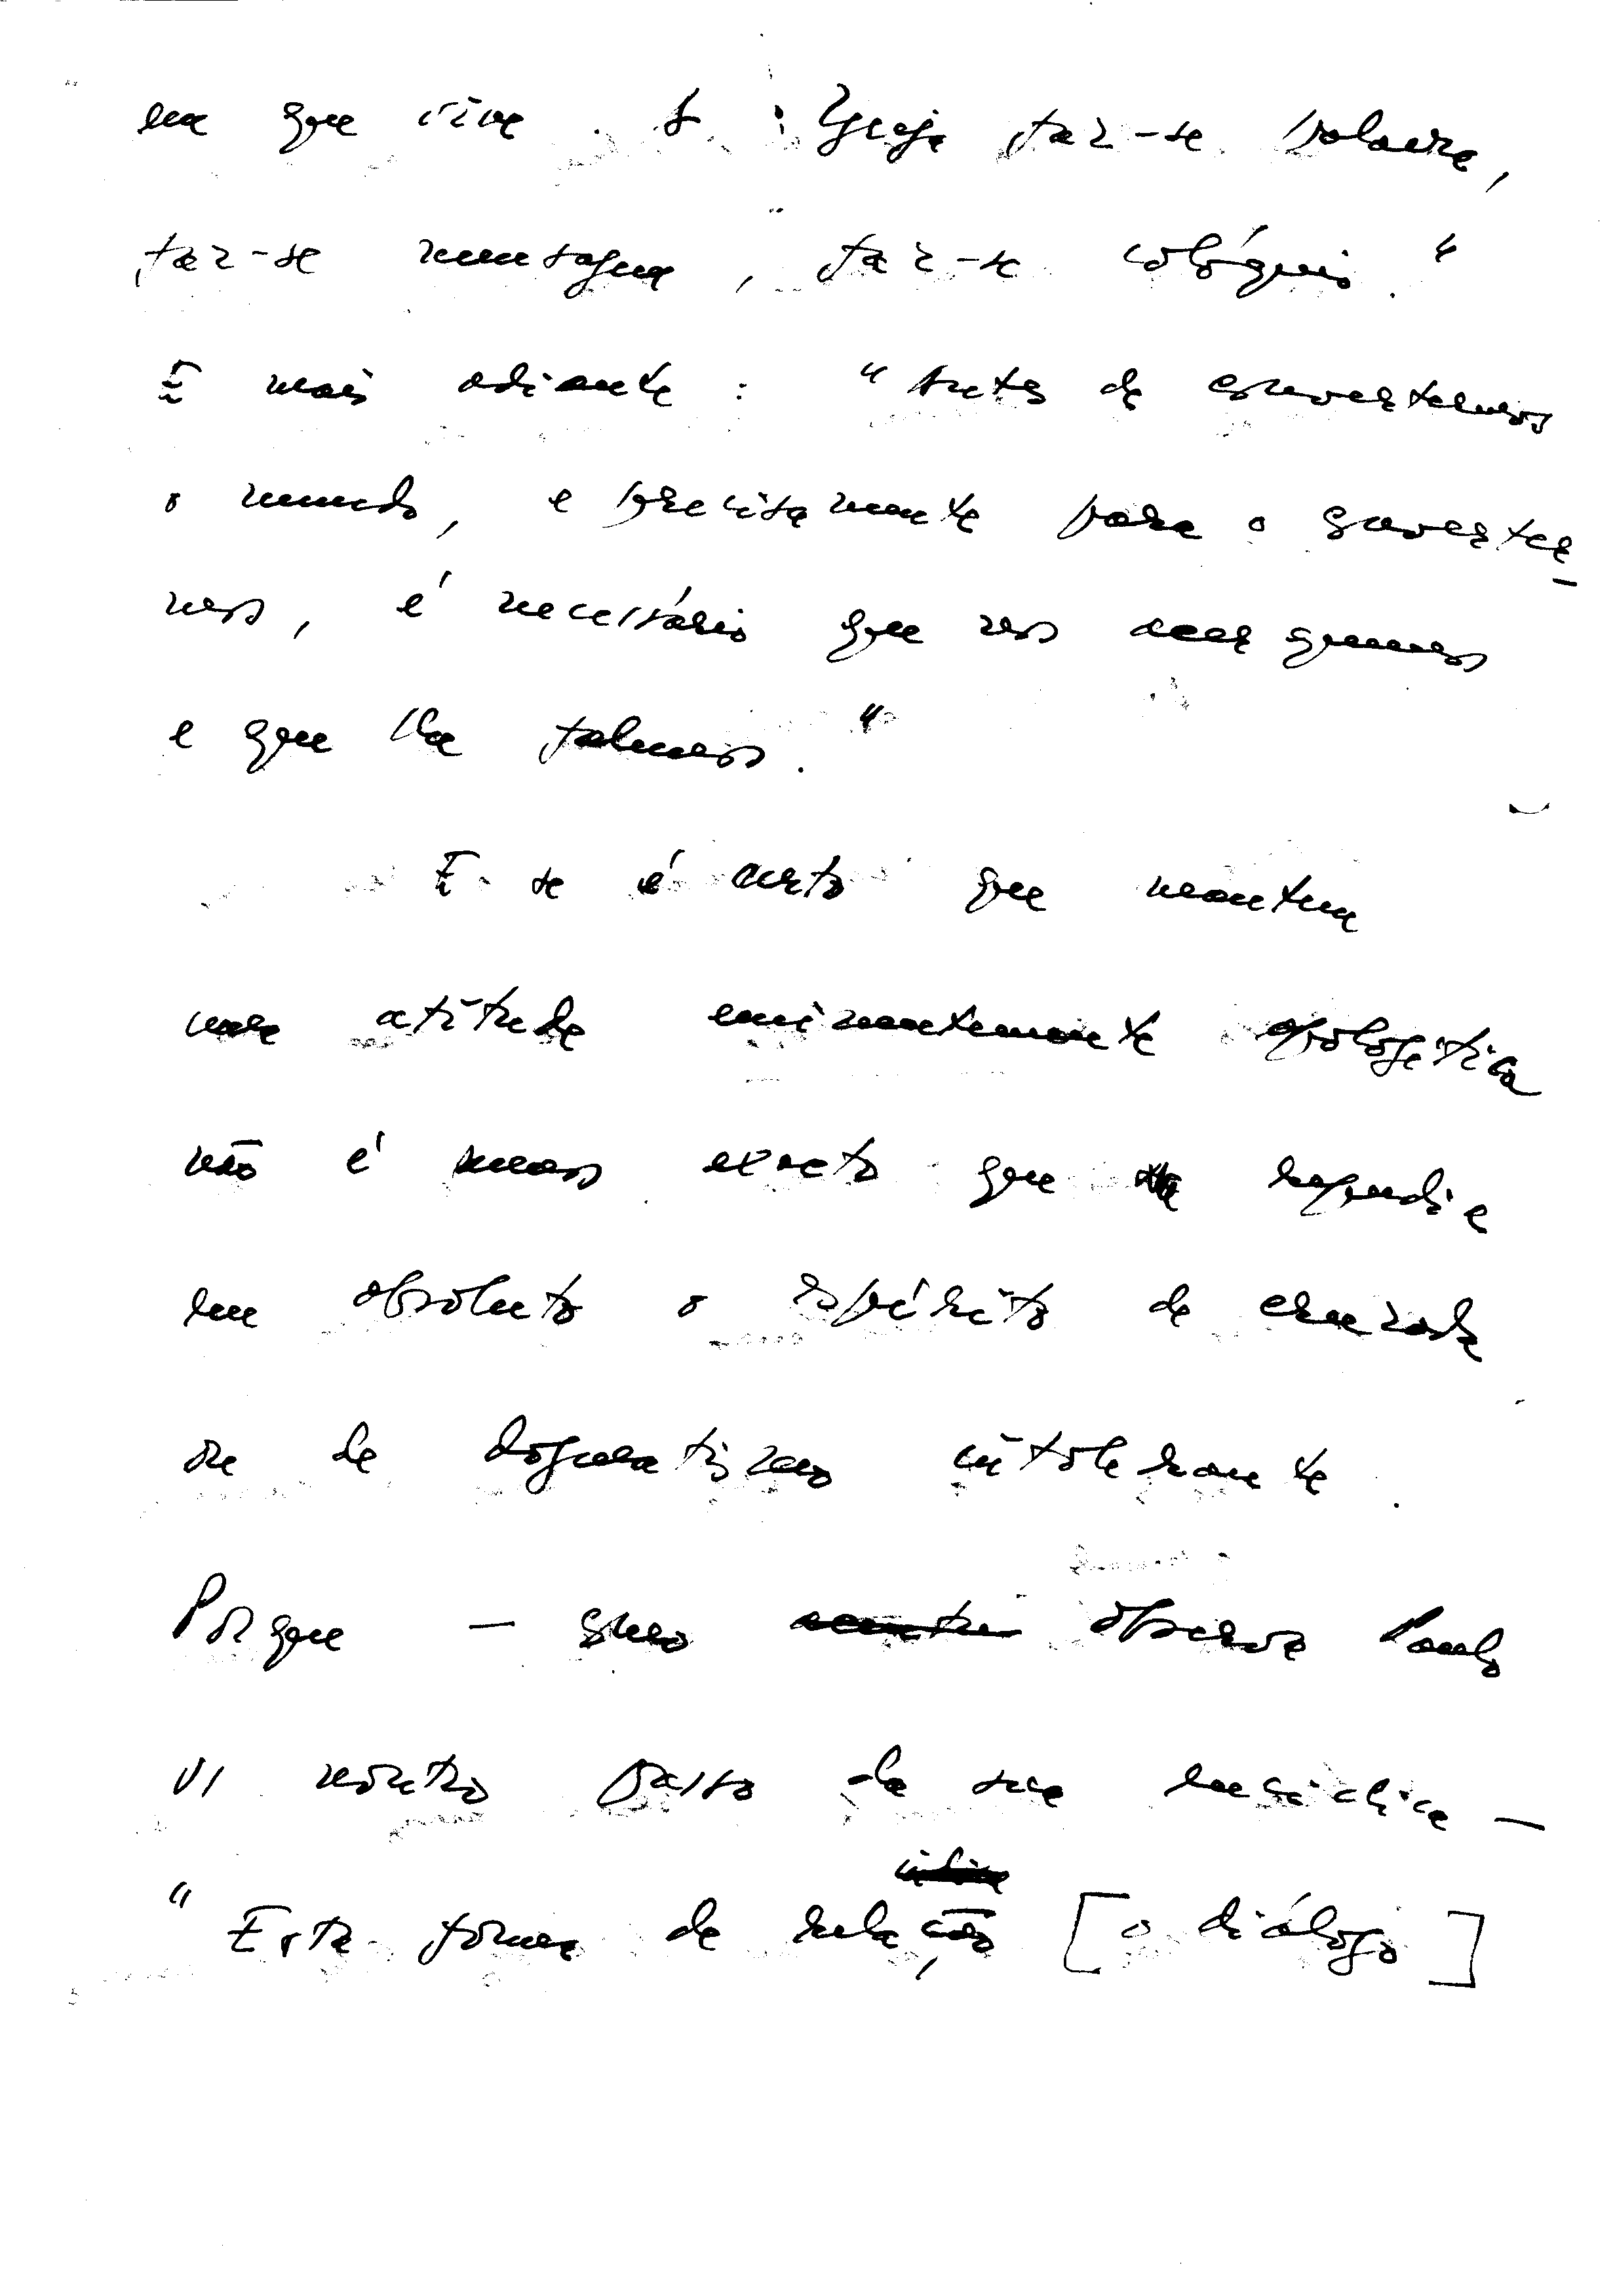 em que vive. A Igreja faz-se palavra,
faz-se mensagem, faz-se colóquio."
E mais adiante: "Antes de convertermos
o mundo, e precisamente para o converter-
mos, é necessário que nos acerquemos
e que lhe falemos."
E se é certo que mantem
uma atitude eminentemente apologética
não é menos exacto que repudia
em absoluto o espírito de cruzada
ou de dogmatismo intolerante.
Porque — como observa Paulo
VI noutro passo da sua encíclica —
"Esta forma de relação [o diálogo]